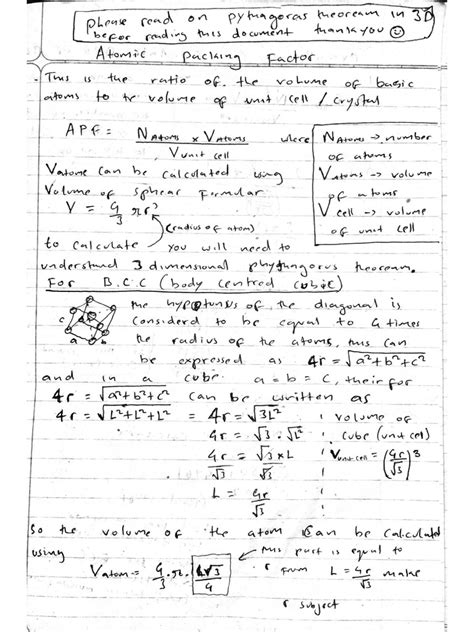 please read on pythagoras theoream in 3D
befor reading this document thankyou ☺
Atomic packing Factor
This is the ratio of the volume of basic
atoms to the volume of unit cell / crystal
APF = NAtoms x VAtoms / Vunit cell where
NAtoms -> number
of atoms
VAtoms -> volume
of atoms
Vcell -> volume
of unit cell
Vatome can be calculated using
Volume of sphear Formular
V = 4/3 πr³
(radius of atom)
to calculate you will need to
understand 3 dimensional phythangorus theoream.
For B.C.C (body centred cubic)
c a b
the hypotunsis of the diagonal is
considerd to be equal to 4 times
the radius of the atoms, this can
be expressed as 4r = √a²+b²+c²
and in a cube a=b=c, their for
4r = √a²+b²+c² can be written as
4r = √L²+L²+L² = 4r = √3L²
4r = √3 . √L²
4r/√3 = √3 x L/√3
L = 4r/√3
volume of
cube (unit cel)
Vunit cell = (4r/√3)³
So the volume of the atom can be calculated
using
this part is equal to
r from L = 4r/√3 make
r subject
Vatom = 4/3 . π . L√3/4